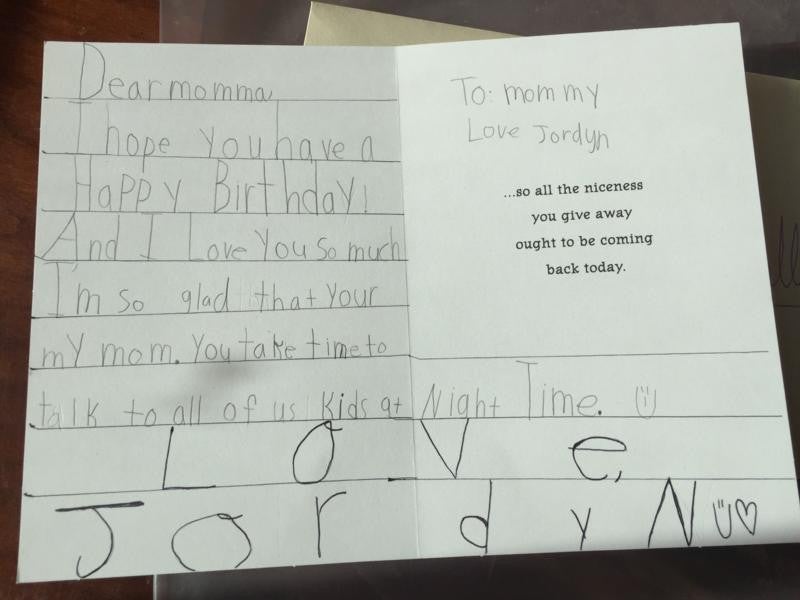 Dear momma,
I hope you have a
Happy Birthday!
And I Love You so much
I'm so glad that your
my mom. You take time to
talk to all of us kids at Night Time.
Love,
Jordyn
To: mommy
Love Jordyn
...so all the niceness
you give away
ought to be coming
back today.